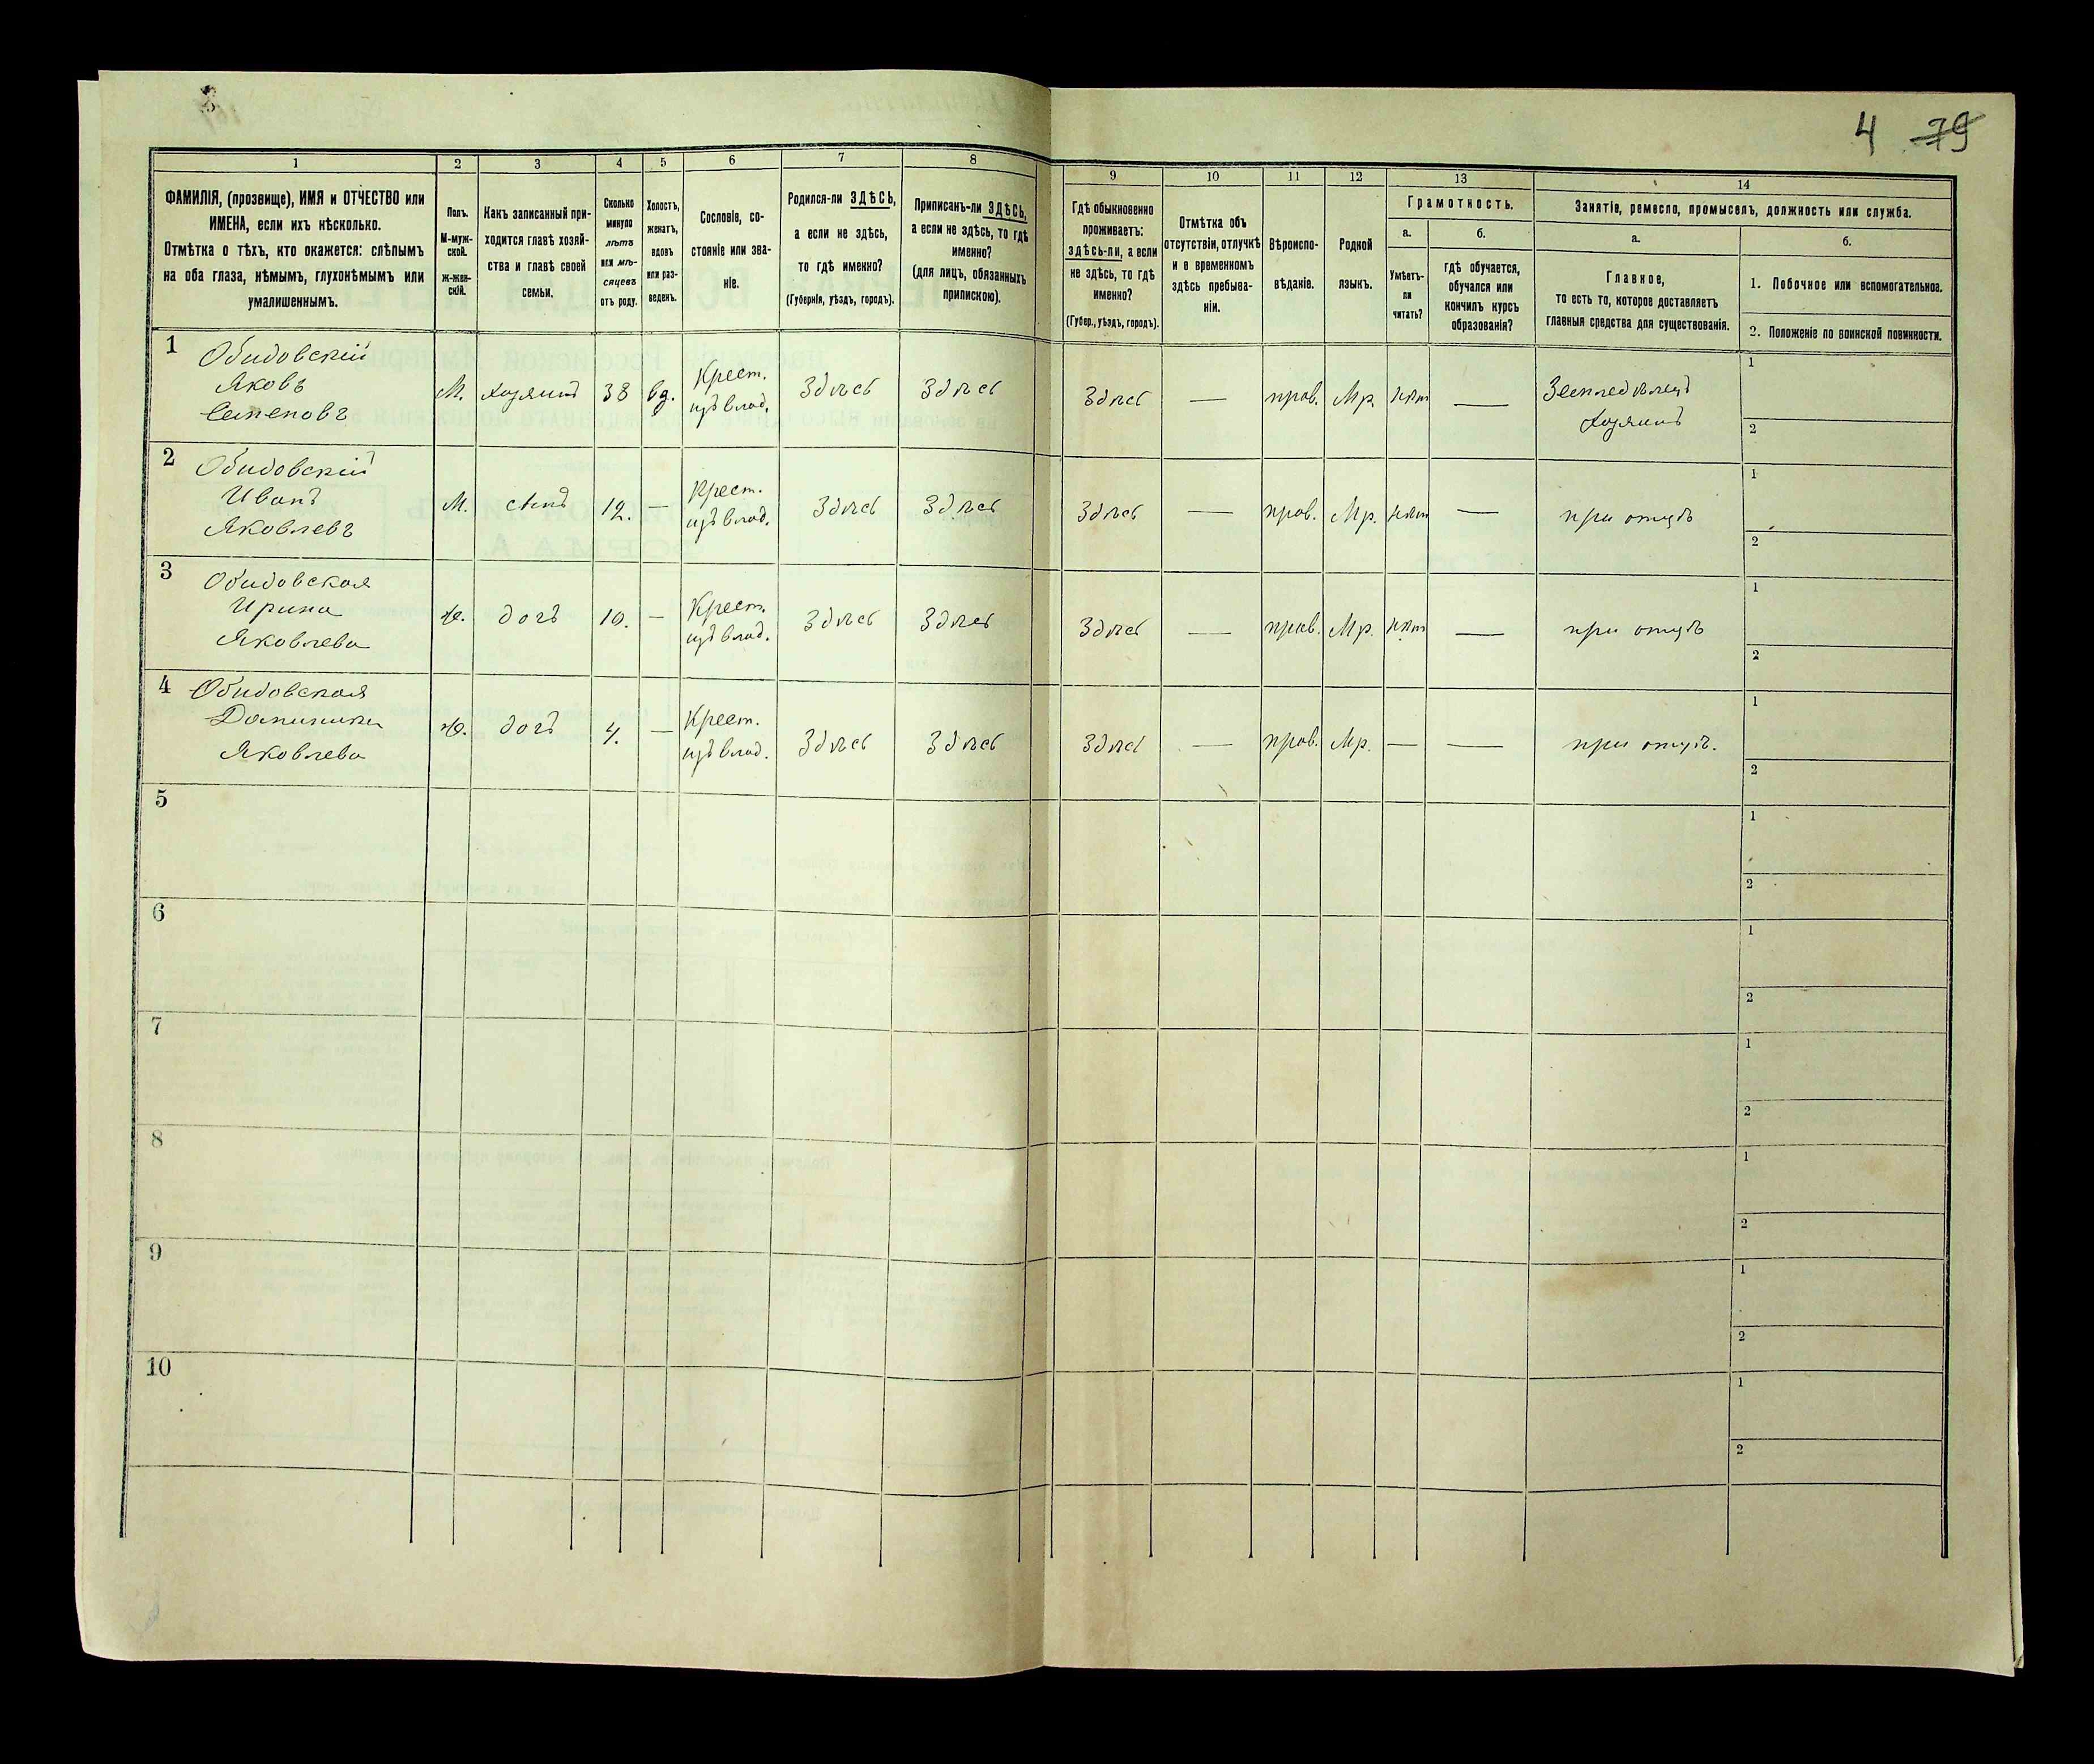 3
4 79
1
2
3
4
5
6
7
8
9
10
11
12
13
14
ФАМИЛІЯ, (прозвище), ИМЯ и ОТЧЕСТВО или
ИМЕНА, если ихъ нѣсколько.
Отмѣтка о тѣхъ, кто окажется: слѣпымъ
на оба глаза, нѣмымъ, глухонѣмымъ или
умалишеннымъ.
Полъ.
М-муж-
ской.
ж-жен-
скій.
Какъ записанный при-
ходится главѣ хозяй-
ства и главѣ своей
семьи.
Сколько
минуло
лѣтъ
или мѣ-
сяцевъ
отъ роду.
Холостъ,
женатъ,
вдовъ
или раз-
веденъ.
Сословіе, со-
стояніе или зва-
ніе.
Родился-ли ЗДѢСЬ,
а если не здѣсь,
то гдѣ именно?
(Губернія, уѣздъ, городъ).
Приписанъ-ли ЗДѢСЬ,
а если не здѣсь, то гдѣ
именно?
(для лицъ, обязанныхъ
припискою).
Гдѣ обыкновенно
проживаетъ:
здѣсь-ли, а если
не здѣсь, то гдѣ
именно?
(Губер., уѣздъ, городъ).
Отмѣтка объ
отсутствіи, отлучкѣ
и о временномъ
здѣсь пребыва-
ніи.
Вѣроиспо-
вѣданіе.
Родной
языкъ.
Грамотность.
а.
Умѣетъ-
ли
читать?
б.
гдѣ обучается,
обучался или
кончилъ курсъ
образованія?
Занятіе, ремесло, промыселъ, должность или служба.
а.
Главное,
то есть то, которое доставляетъ
главныя средства для существованія.
б.
1. Побочное или вспомогательное.
2. Положеніе по воинской повинности.
1 Обидовскій
Яковъ
Семеновъ
М. хозяинъ 38 вд. Крест. изъ влад. Здѣсь Здѣсь Здѣсь — прав. Мр. нѣт — Земледѣлецъ хозяинъ
1
2
2 Обидовскій
Иванъ
Яковлевъ
М. сынъ 12. — Крест. изъ влад. Здѣсь Здѣсь Здѣсь — прав. Мр. нѣт — при отцѣ
1
2
3 Обидовская
Ирина
Яковлева
ж. дочь 10. — Крест. изъ влад. Здѣсь Здѣсь Здѣсь — прав. Мр. нѣт — при отцѣ
1
2
4 Обидовская
Доминика
Яковлева
ж. дочь 4. — Крест. изъ влад. Здѣсь Здѣсь Здѣсь — прав. Мр. — — при отцѣ.
1
2
5
1
2
6
1
2
7
1
2
8
1
2
9
1
2
10
1
2